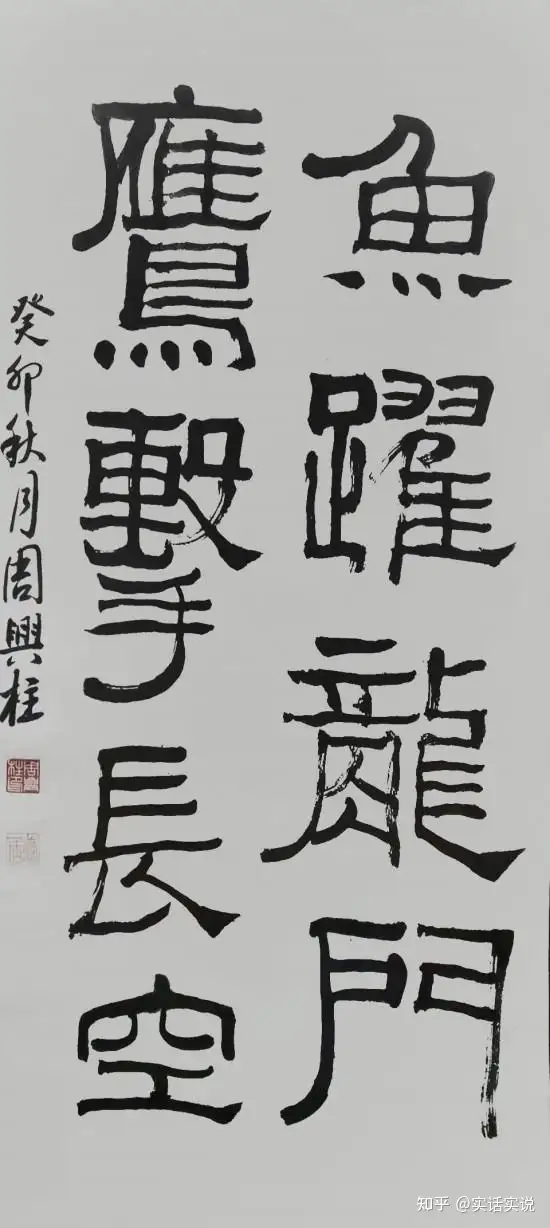 魚躍龍門
鷹擊長空
癸卯秋月周興柱
知乎 @实话实说